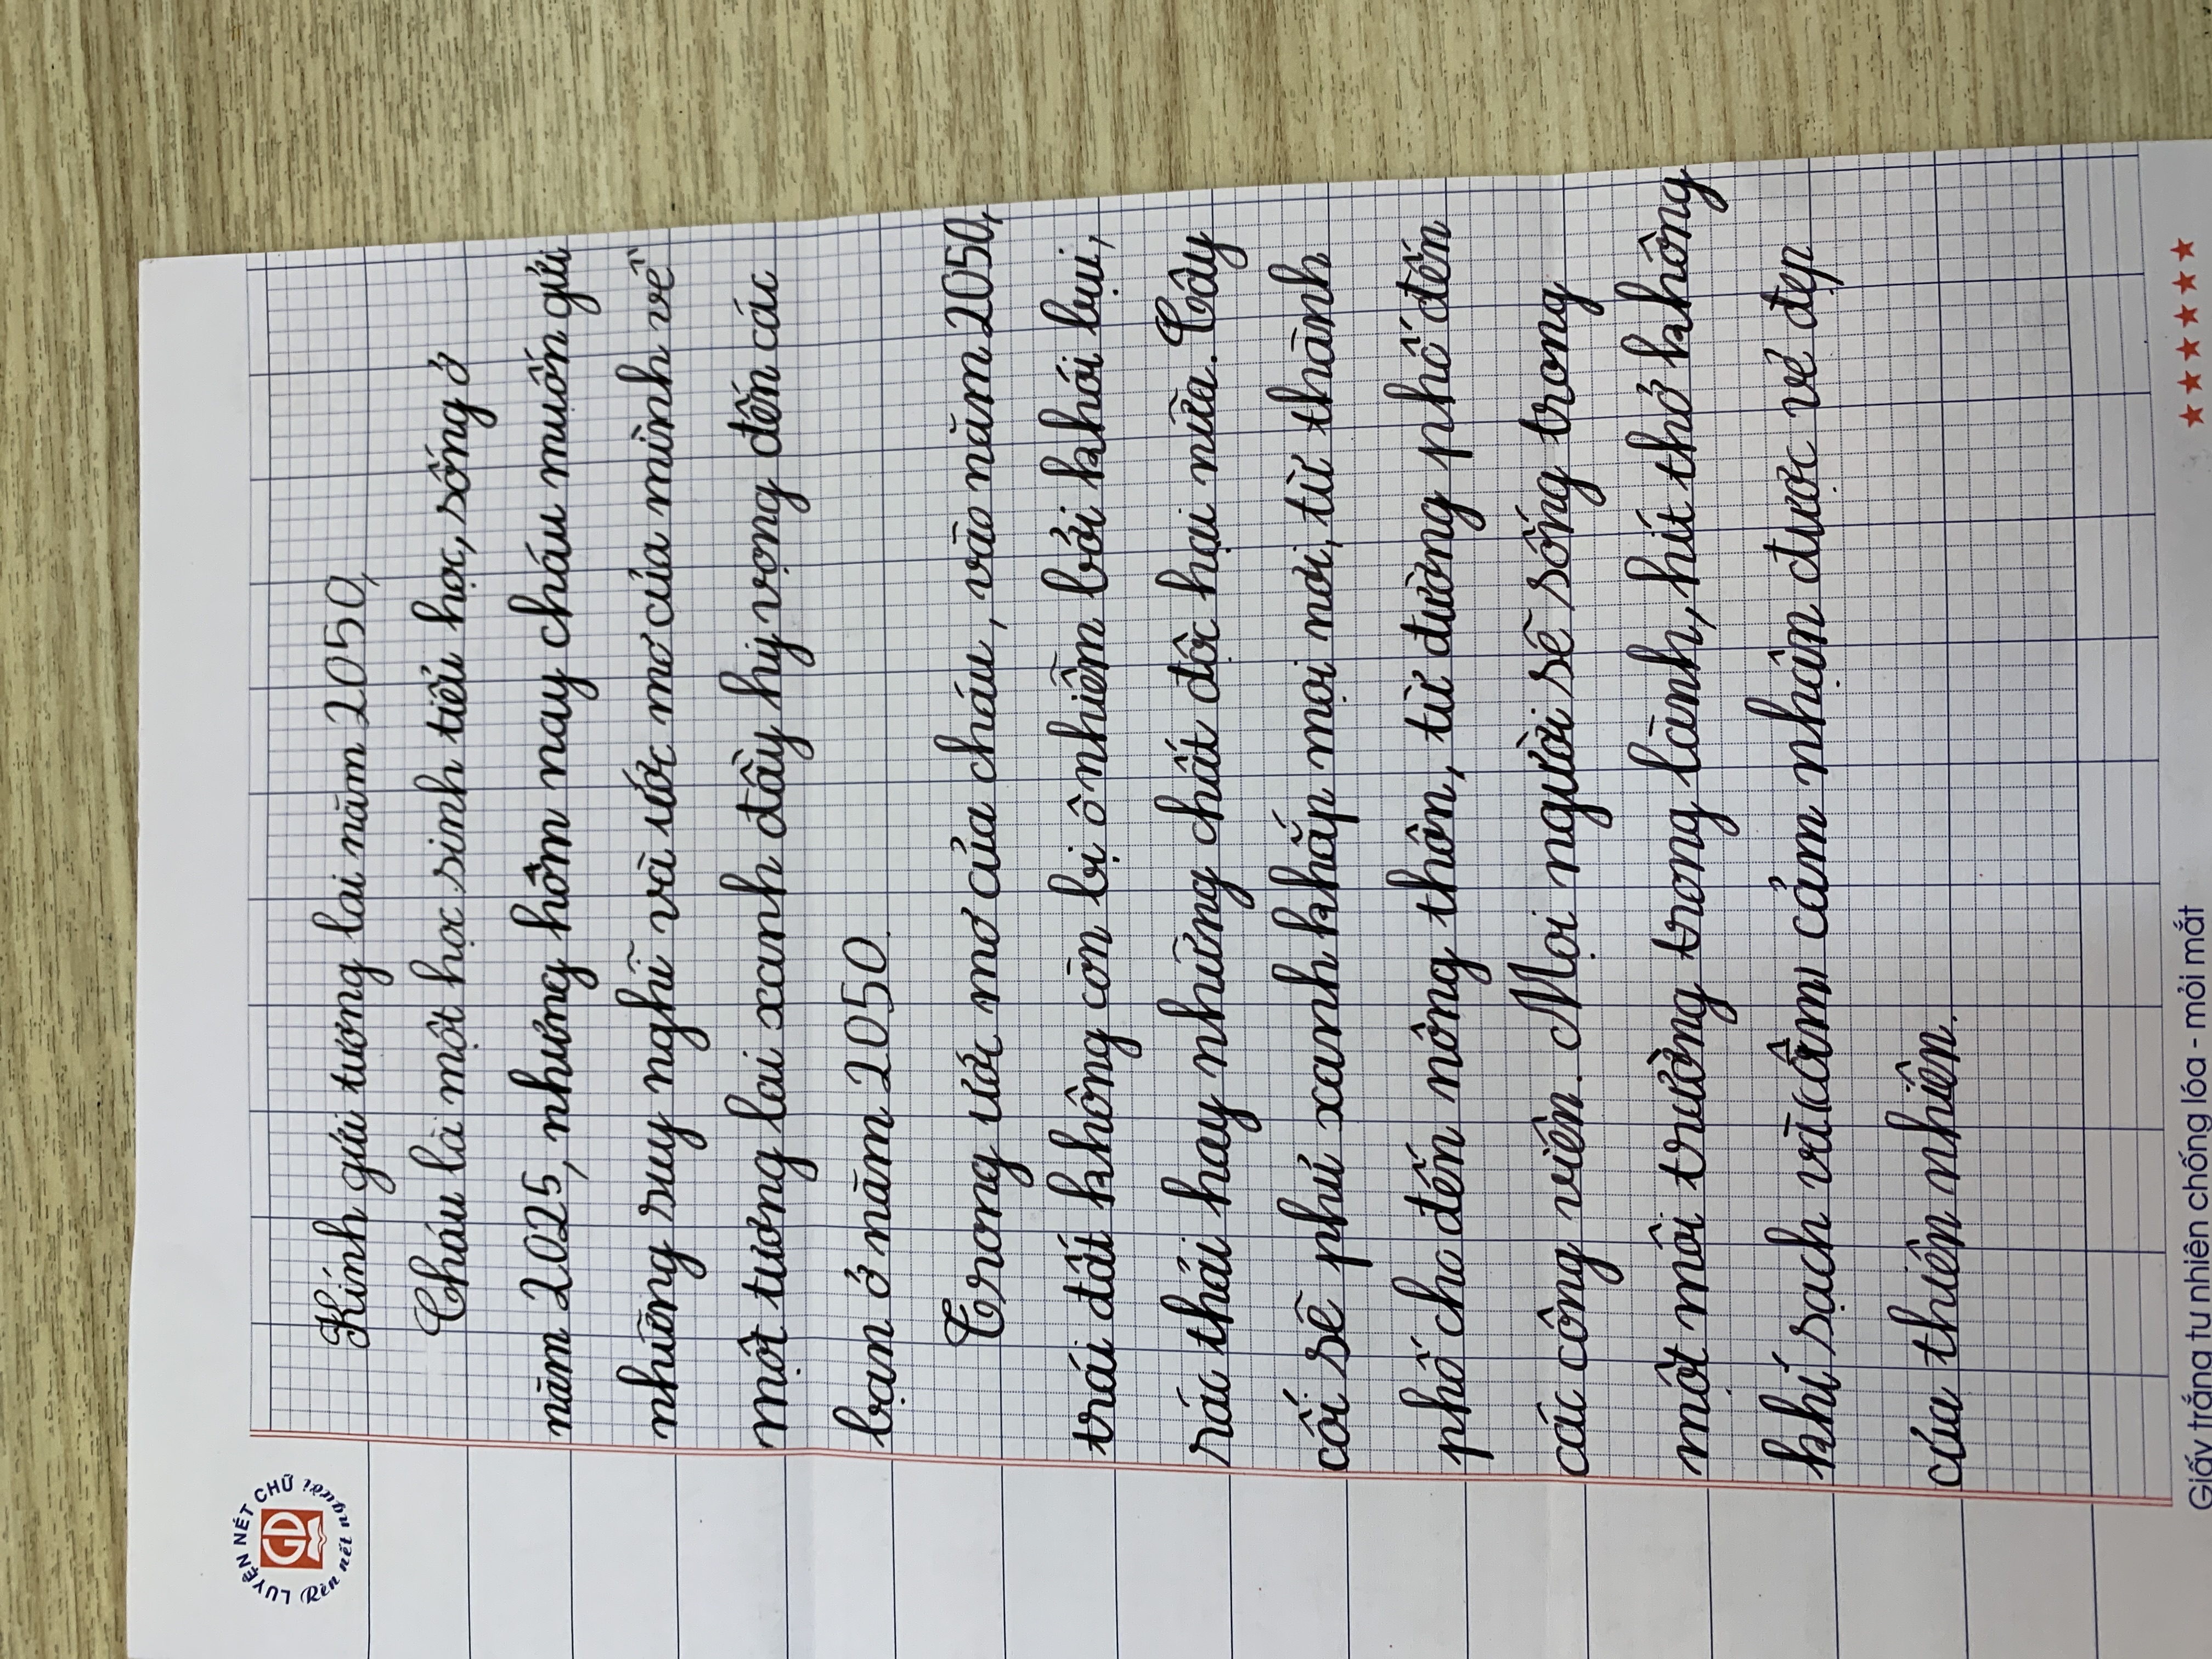 LUYỆN NÉT CHỮ
Rèn nết người
GD
Kính gửi tương lai năm 2050,
Cháu là một học sinh tiểu học, sống ở
năm 2025, nhưng hôm nay cháu muốn gửi
những suy nghĩ và ước mơ của mình về
một tương lai xanh đầy hy vọng đến các
bạn ở năm 2050.
Trong ước mơ của cháu, vào năm 2050,
trái đất không còn bị ô nhiễm bởi khói bụi,
rác thải hay những chất độc hại nữa. Cây
cối sẽ phủ xanh khắp mọi nơi, từ thành
phố cho đến nông thôn, từ đường phố đến
các công viên. Mọi người sẽ sống trong
một môi trường trong lành, hít thở không
khí sạch và cảm cảm nhận được vẻ đẹp
của thiên nhiên.
Giấy trắng tự nhiên chống lóa - mỏi mắt